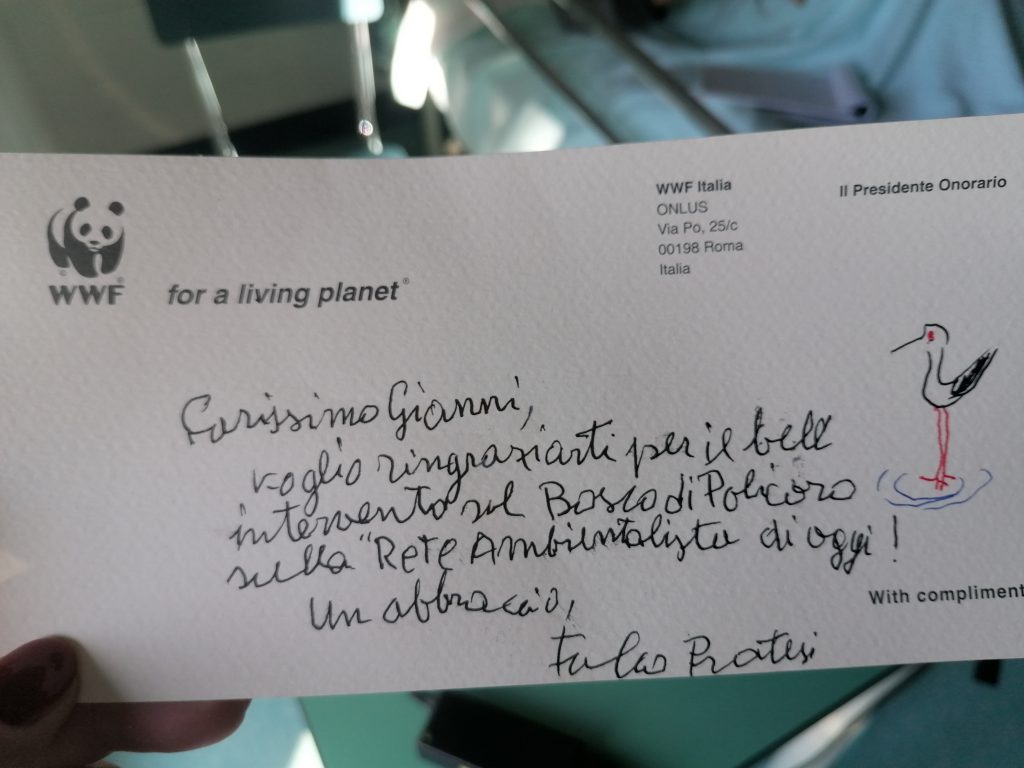 WWF
for a living planet®
WWF Italia
ONLUS
Via Po, 25/c
00198 Roma
Italia
Il Presidente Onorario
Carissimo Gianni,
voglio ringraziarti per il bell
intervento sul Bosco di Policoro
sulla "Rete Ambientalista di oggi!
Un abbraccio,
Fulco Pratesi
With compliment